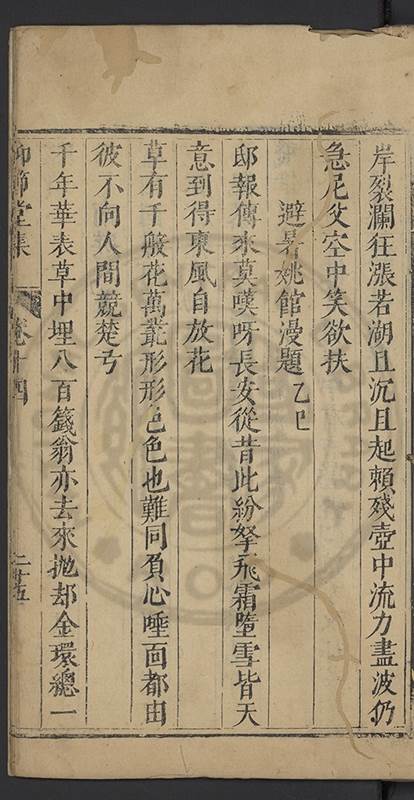 岸裂瀾狂漲若湖且沉且起賴殘壺中流力盡波仍
急尼父空中笑欲扶
避暑姚館漫題乙巳
邸報傳來莫嘆呀長安從昔此紛拏飛霜墮雪皆天
意到得東風自放花
草有千般花萬叢形形色色也難同負心唾面都由
彼不向人間競楚弓
千年華表草中埋八百籛翁亦去來拋却金環總一
仰節堂集
卷十四
二十五